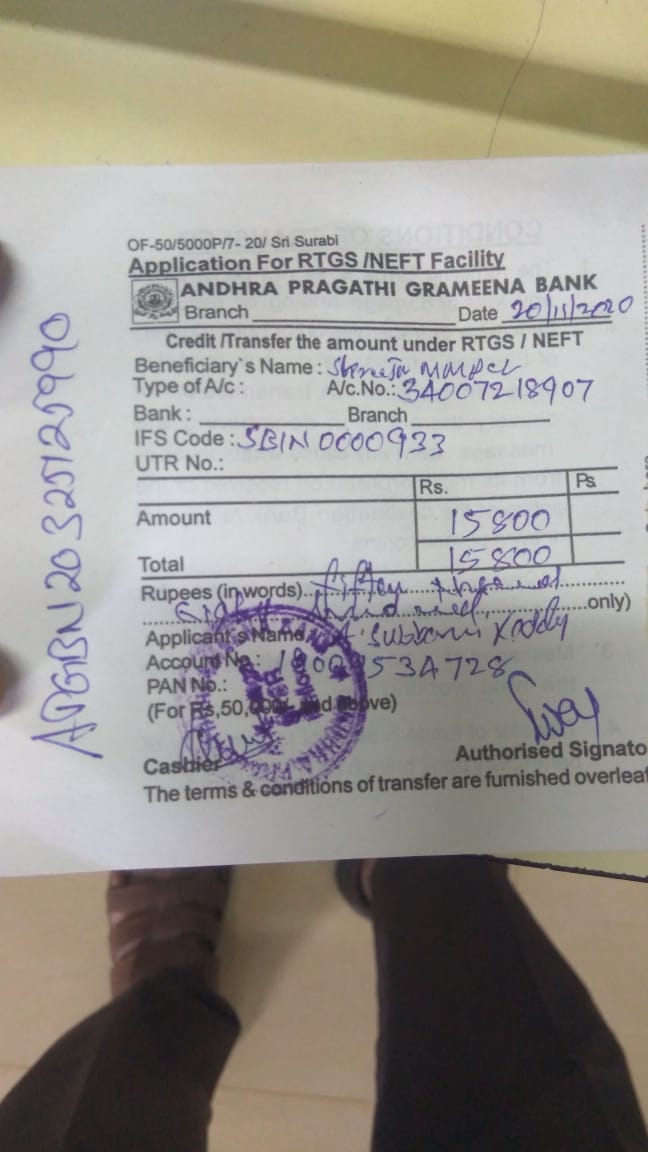 OF-50/5000P/7- 20/ Sri Surabi
Application For RTGS /NEFT Facility
ANDHRA PRAGATHI GRAMEENA BANK
Branch Date 20/11/2020
Credit /Transfer the amount under RTGS / NEFT
Beneficiary's Name :
Type of A/c : A/c.No.: 34007218907
Bank : Branch
IFS Code : SBIN0000933
UTR No.:
Rs. Ps
Amount 15800
Total 15800
Rupees (in words) fifteen thousand
eight hundred only)
Applicant's Name A. Subbami Reddy
Account No.:
PAN No.:
(For Rs,50,000/- and above)
Cashier Authorised Signato
The terms & conditions of transfer are furnished overleaf
APGBN20325125990